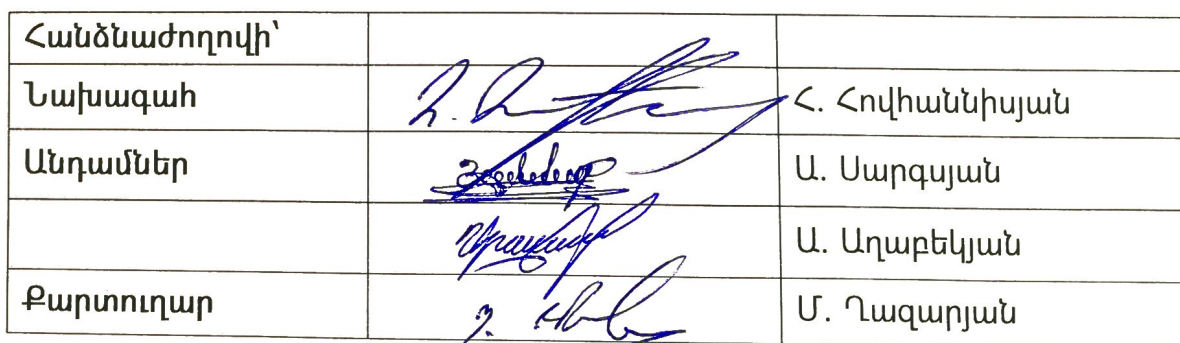 Հանձնաժողովի՝
Նախագահ Հ. Հովհաննիսյան
Անդամներ Ա. Սարգսյան
Ա. Աղաբեկյան
Քարտուղար Մ. Ղազարյան